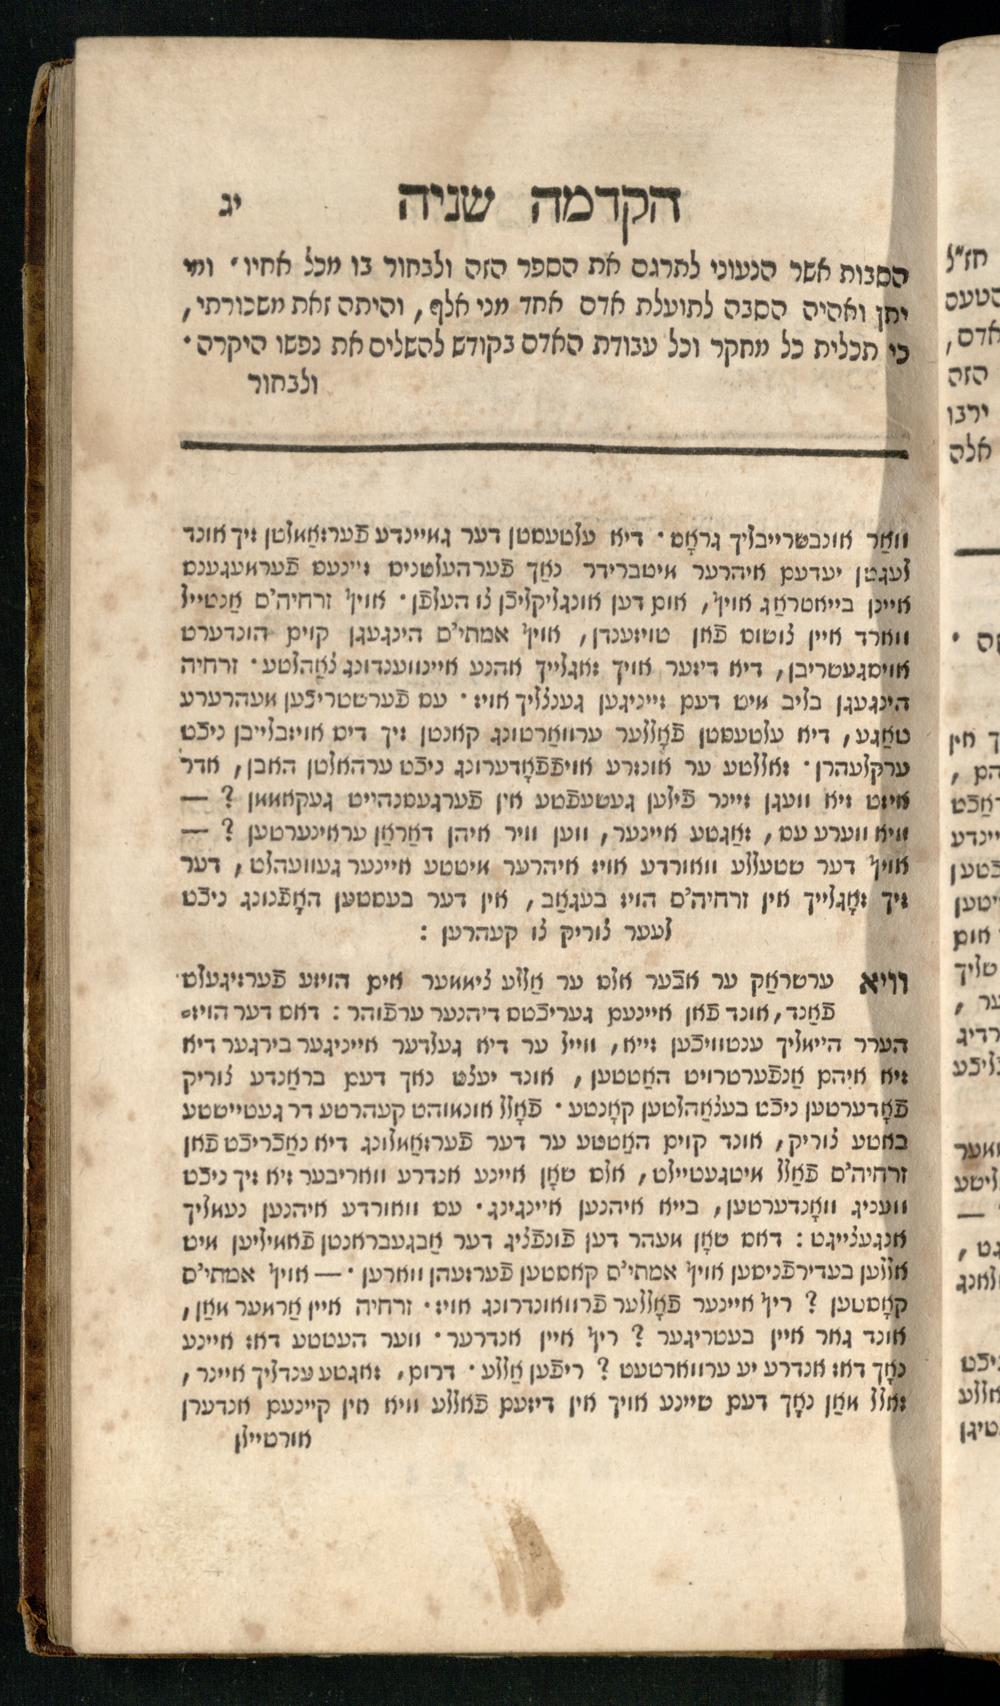 הקדמה שניה יג
הסבות אשר הנעוני לתרגם את הספר הזה ולבחור בו מכל אחיו׳ ומי
יתן ואהיה הסבה לתועלת אדם אחד מני אלף, והיתה זאת משכורתי,
כי תכלית כל מחקר וכל עבודת האדם בקודש להשלים את נפשו היקרה·
ולבחור
וואַר אונבשרייבליך גראָס· דיא עלטעסטן דער געמיינדע פֿערזאַמלטן זיך אונד
לעגטן יעדעם איהרער מיטברידר נאָך פֿערהעלטניס זיינעס פֿערמעגענס
איינן בייאטראַג אויף, אום דען אונגליקליכֿן צו העלפֿן· אויף זרחיה׳ם אַנטייל
ווארד איין צוטום פֿאָן טויזענדן, אויף אמתי׳ם הינגעגן קוים הונדערט
אויסגעטריבן, דיא דיזער אויך זאגלייך אהנע איינווענדונג צאַהלטע· זרחיה
הינגעגן בליב מיט דעם זייניגען גענצליך אויז· עס פֿערשטריכֿען מעהרערע
טאַגע, דיא עלטעסטן פֿאָללער ערוואַרטונג קאנטן זיך דיס אויזבלייבן ניכֿט
ערקלעהרן· זאללטע ער אונזרע אויפֿפֿאָדערונג ניכֿט ערהאלטן האבן, אדר
איזט זיא וועגן זיינר פֿילען געשעפֿטע אין פֿערגעסנהייט געקאממן ? —
וויא ווערע עס, זאַגטע איינער, ווען וויר איהן דאַראַן עראינערטען ? —
אויף דער שטעללע וואורדע אויז איהרער מיטטע איינער געוועהלט, דער
זיך זאָגלייך אין זרחיה׳ם הויז בעגאַב, אין דער בעסטען האָפֿנונג ניכֿט
לעער צוריק צו קעהרען :
וויא ערשראַק ער אבֿער אלס ער אַללע צימאער אים הויזע פֿערזיגעלט
פֿאַנד, אונד פֿאָן איינעם געריכֿטס דיהנער ערפֿוהר : דאס דער הויז־
הערר היימליך ענטוויכֿען זייא, ווייל ער דיא געלדער אייניגער בירגער דיא
זיא איהם אַנפֿערטרויט האַטטען, אונד יעצט נאָך דעם בראַנדע צוריק
פֿאָדערטען ניכֿט בעצאַהלטען קאָנטע· פֿאָלל אונמוהט קעהרטע דר געשייטטע
באטע צוריק, אונד קוים האַטטע ער דער פֿערזאַמלונג דיא נאַכֿריכֿט פֿאָן
זרחיה׳ם פֿאַלל מיטגעטיילט, אלס שאָן איינע אנדרע וואריבער זיא זיך ניכֿט
וועניג וואָנדערטען, בייא איהנען איינגינג· עס וואורדע איהנען נעמליך
אנגעצייגט : דאס שאָן מעהר דען פֿונפֿציג דער אַבגעבראנטן פֿאמיליען מיט
אללען בעדירפֿניסען אויף אמתי׳ם קאסטען פֿערזעהן ווארען· — אויף אמתי׳ם
קאָסטען ? ריף איינער פֿאָללער פֿרוואונדרונג אויז· זרחיה איין אַרמער מאַן,
אונד גאר איין בעטריגער ? ריף איין אנדרער· ווער העטטע דאז איינע
נאָך דאז אנדרע יע ערווארטעט ? ריפֿען אַללע· דרום, זאגטע ענדליך איינר,
זאלל מאן נאָך דעם שיינע אויך אין דיזעם פֿאללע וויא אין קיינעם אנדערן
אורטיילן